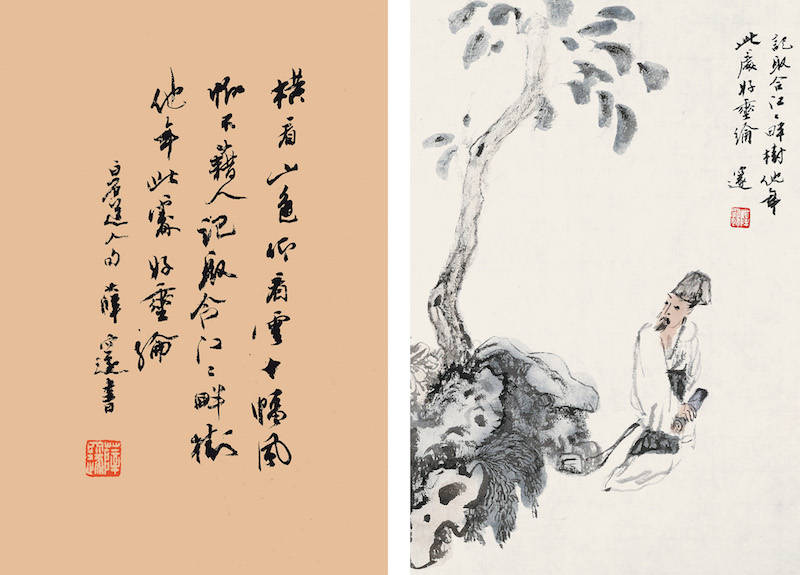 横看山色仰看雲十幅風
帆不藉人記取合江〻畔樹
他年此處好垂綸
白石道人句 薛邃書
記取合江〻畔樹他年
此處好垂綸 邃